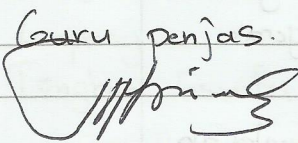 Guru penjas.